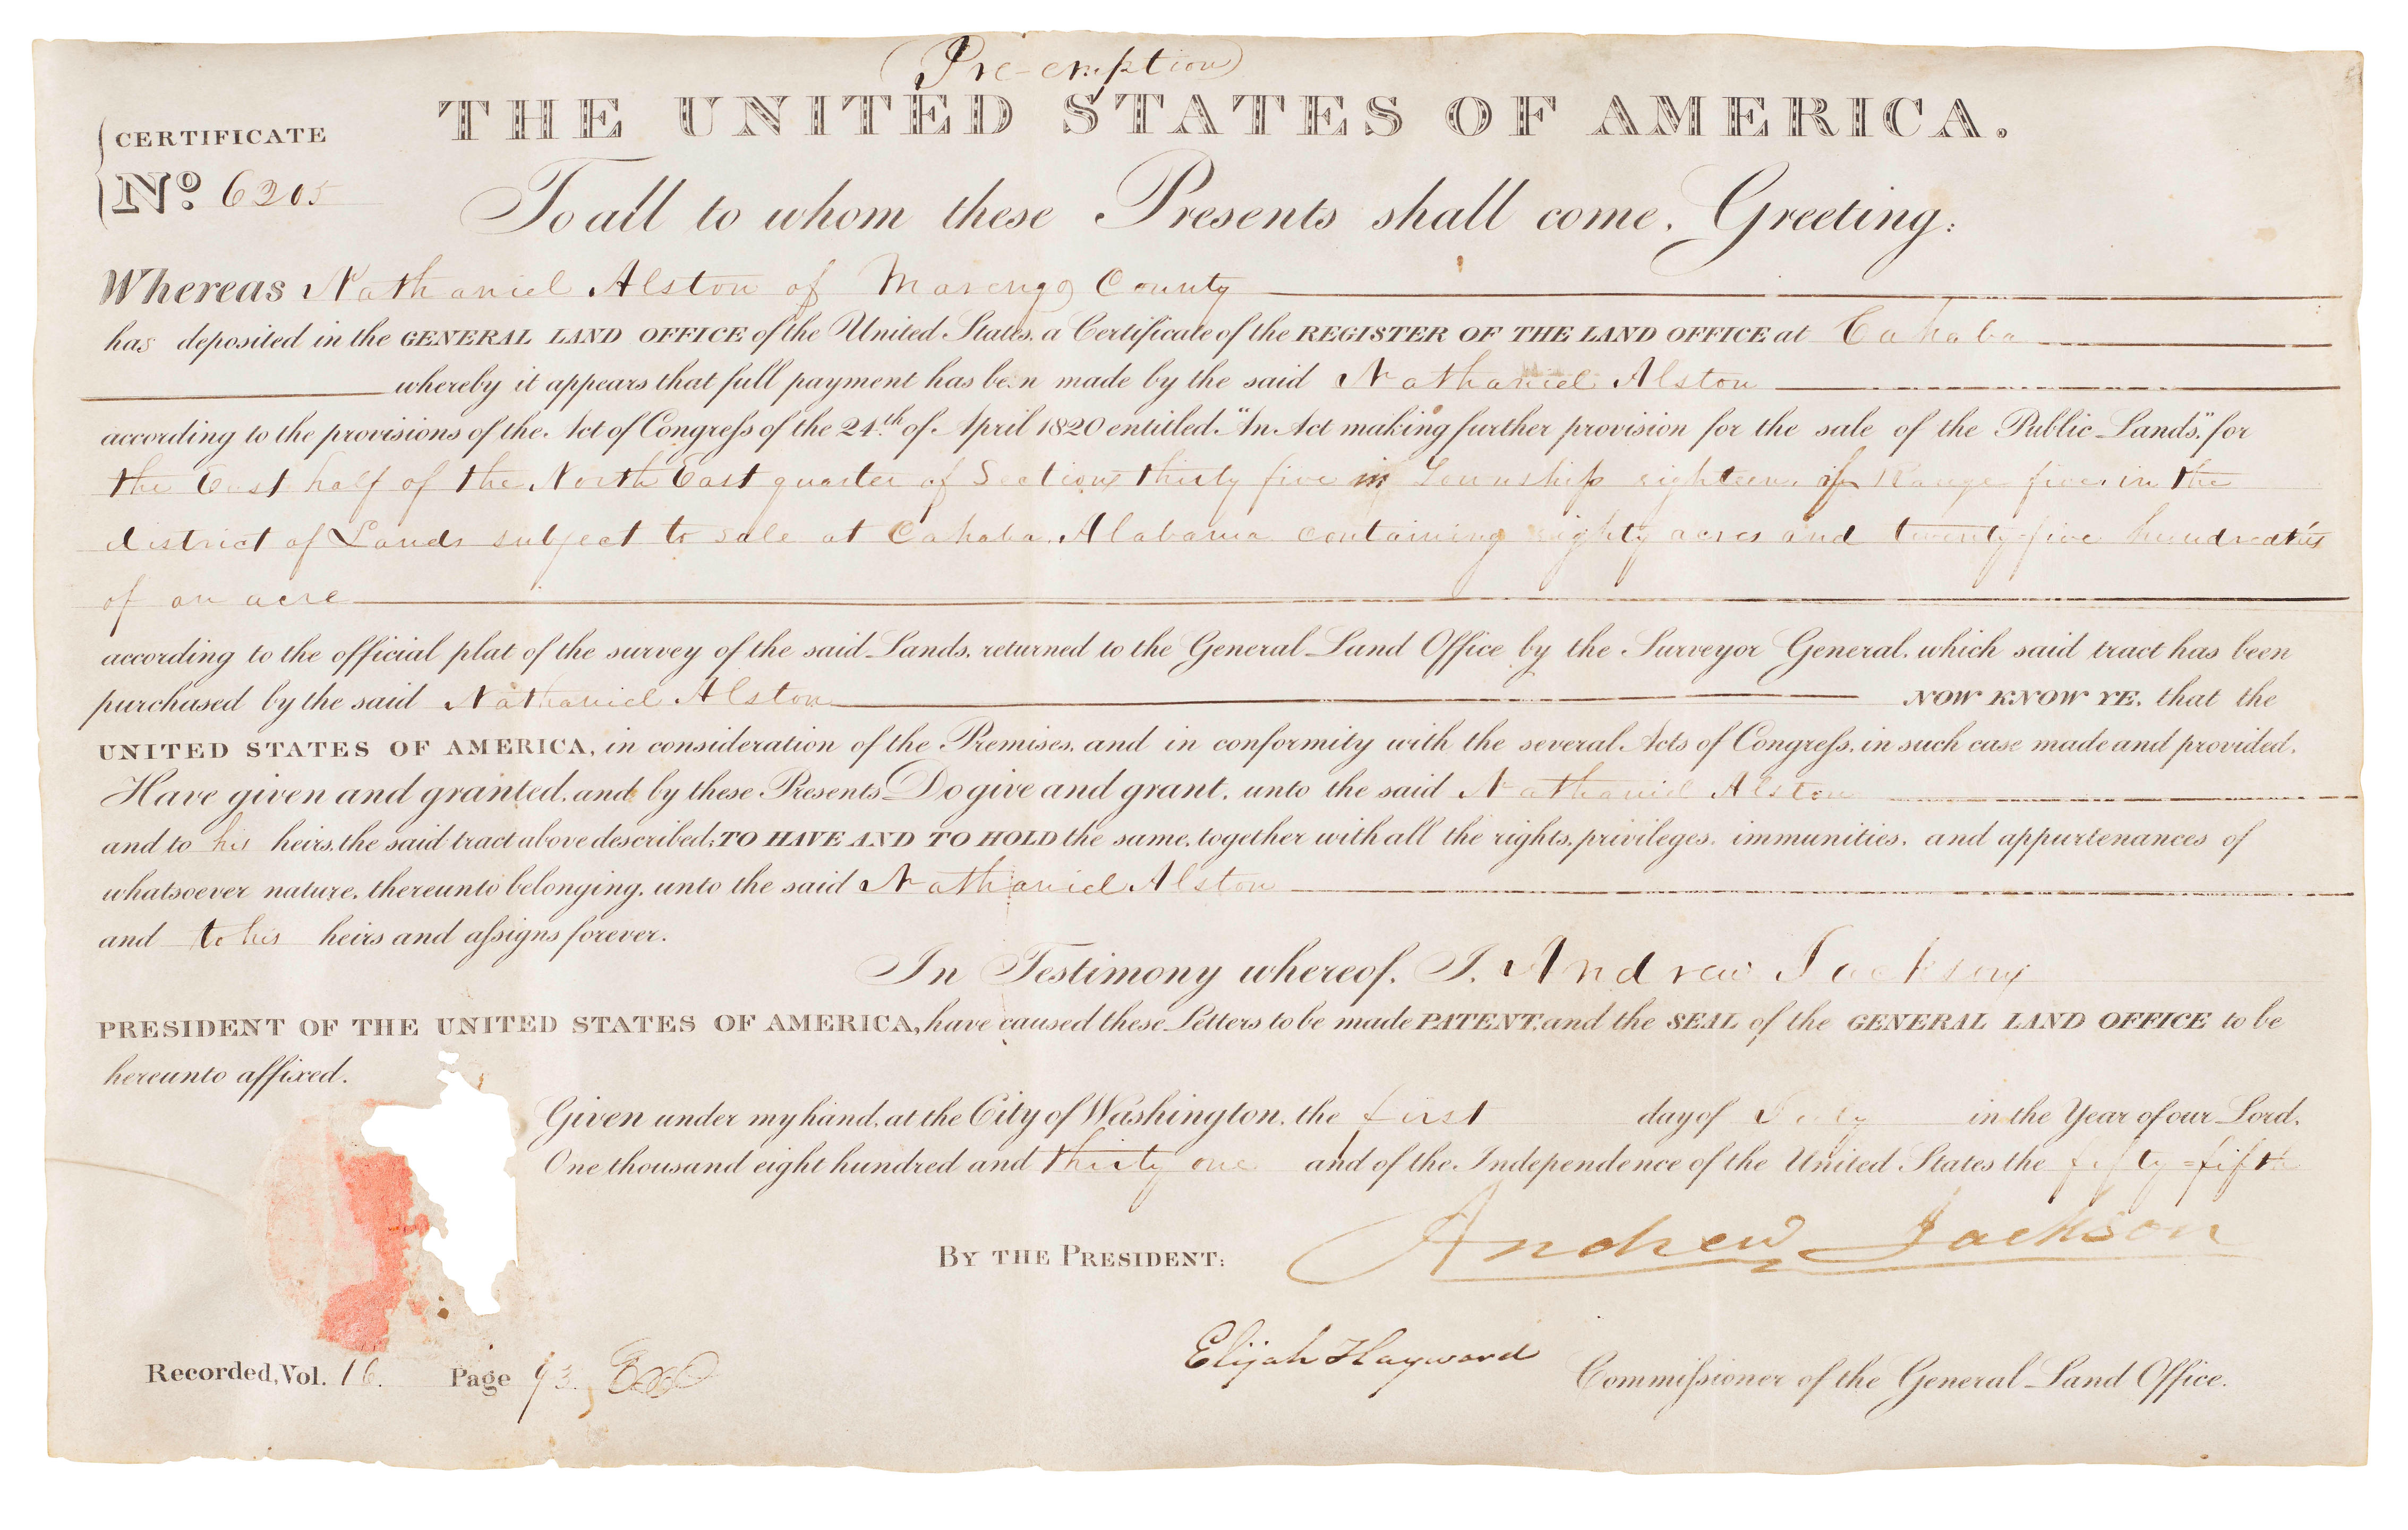 (Pre-emption)
THE UNITED STATES OF AMERICA.
CERTIFICATE
No. 6205
To all to whom these Presents shall come, Greeting:
Whereas Nathaniel Alston of Marengo County
has deposited in the GENERAL LAND OFFICE of the United States, a Certificate of the REGISTER OF THE LAND OFFICE at Cahaba
whereby it appears that full payment has been made by the said Nathaniel Alston
according to the provisions of the Act of Congress of the 24th of April 1820 entitled "An Act making further provision for the sale of the Public Lands," for
the East half of the North East quarter of Section thirty five in Township eighteen, of Range five, in the
district of Lands subject to sale at Cahaba, Alabama containing eighty acres and twenty-five hundredths
of an acre
according to the official plat of the survey of the said Lands, returned to the General Land Office by the Surveyor General, which said tract has been
purchased by the said Nathaniel Alston NOW KNOW YE, that the
UNITED STATES OF AMERICA, in consideration of the Premises, and in conformity with the several Acts of Congress, in such case made and provided,
Have given and granted, and by these Presents Do give and grant, unto the said Nathaniel Alston
and to his heirs, the said tract above described; TO HAVE AND TO HOLD the same, together with all the rights, privileges, immunities, and appurtenances of
whatsoever nature, thereunto belonging, unto the said Nathaniel Alston
and to his heirs and assigns forever.
In Testimony whereof, I, Andrew Jackson
PRESIDENT OF THE UNITED STATES OF AMERICA, have caused these Letters to be made PATENT, and the SEAL of the GENERAL LAND OFFICE to be
hereunto affixed.
Given under my hand, at the City of Washington, the first day of July in the Year of our Lord,
One thousand eight hundred and thirty one and of the Independence of the United States the fifty=fifth
BY THE PRESIDENT: Andrew Jackson
Elijah Hayward Commissioner of the General Land Office.
Recorded, Vol. 16. Page 93.